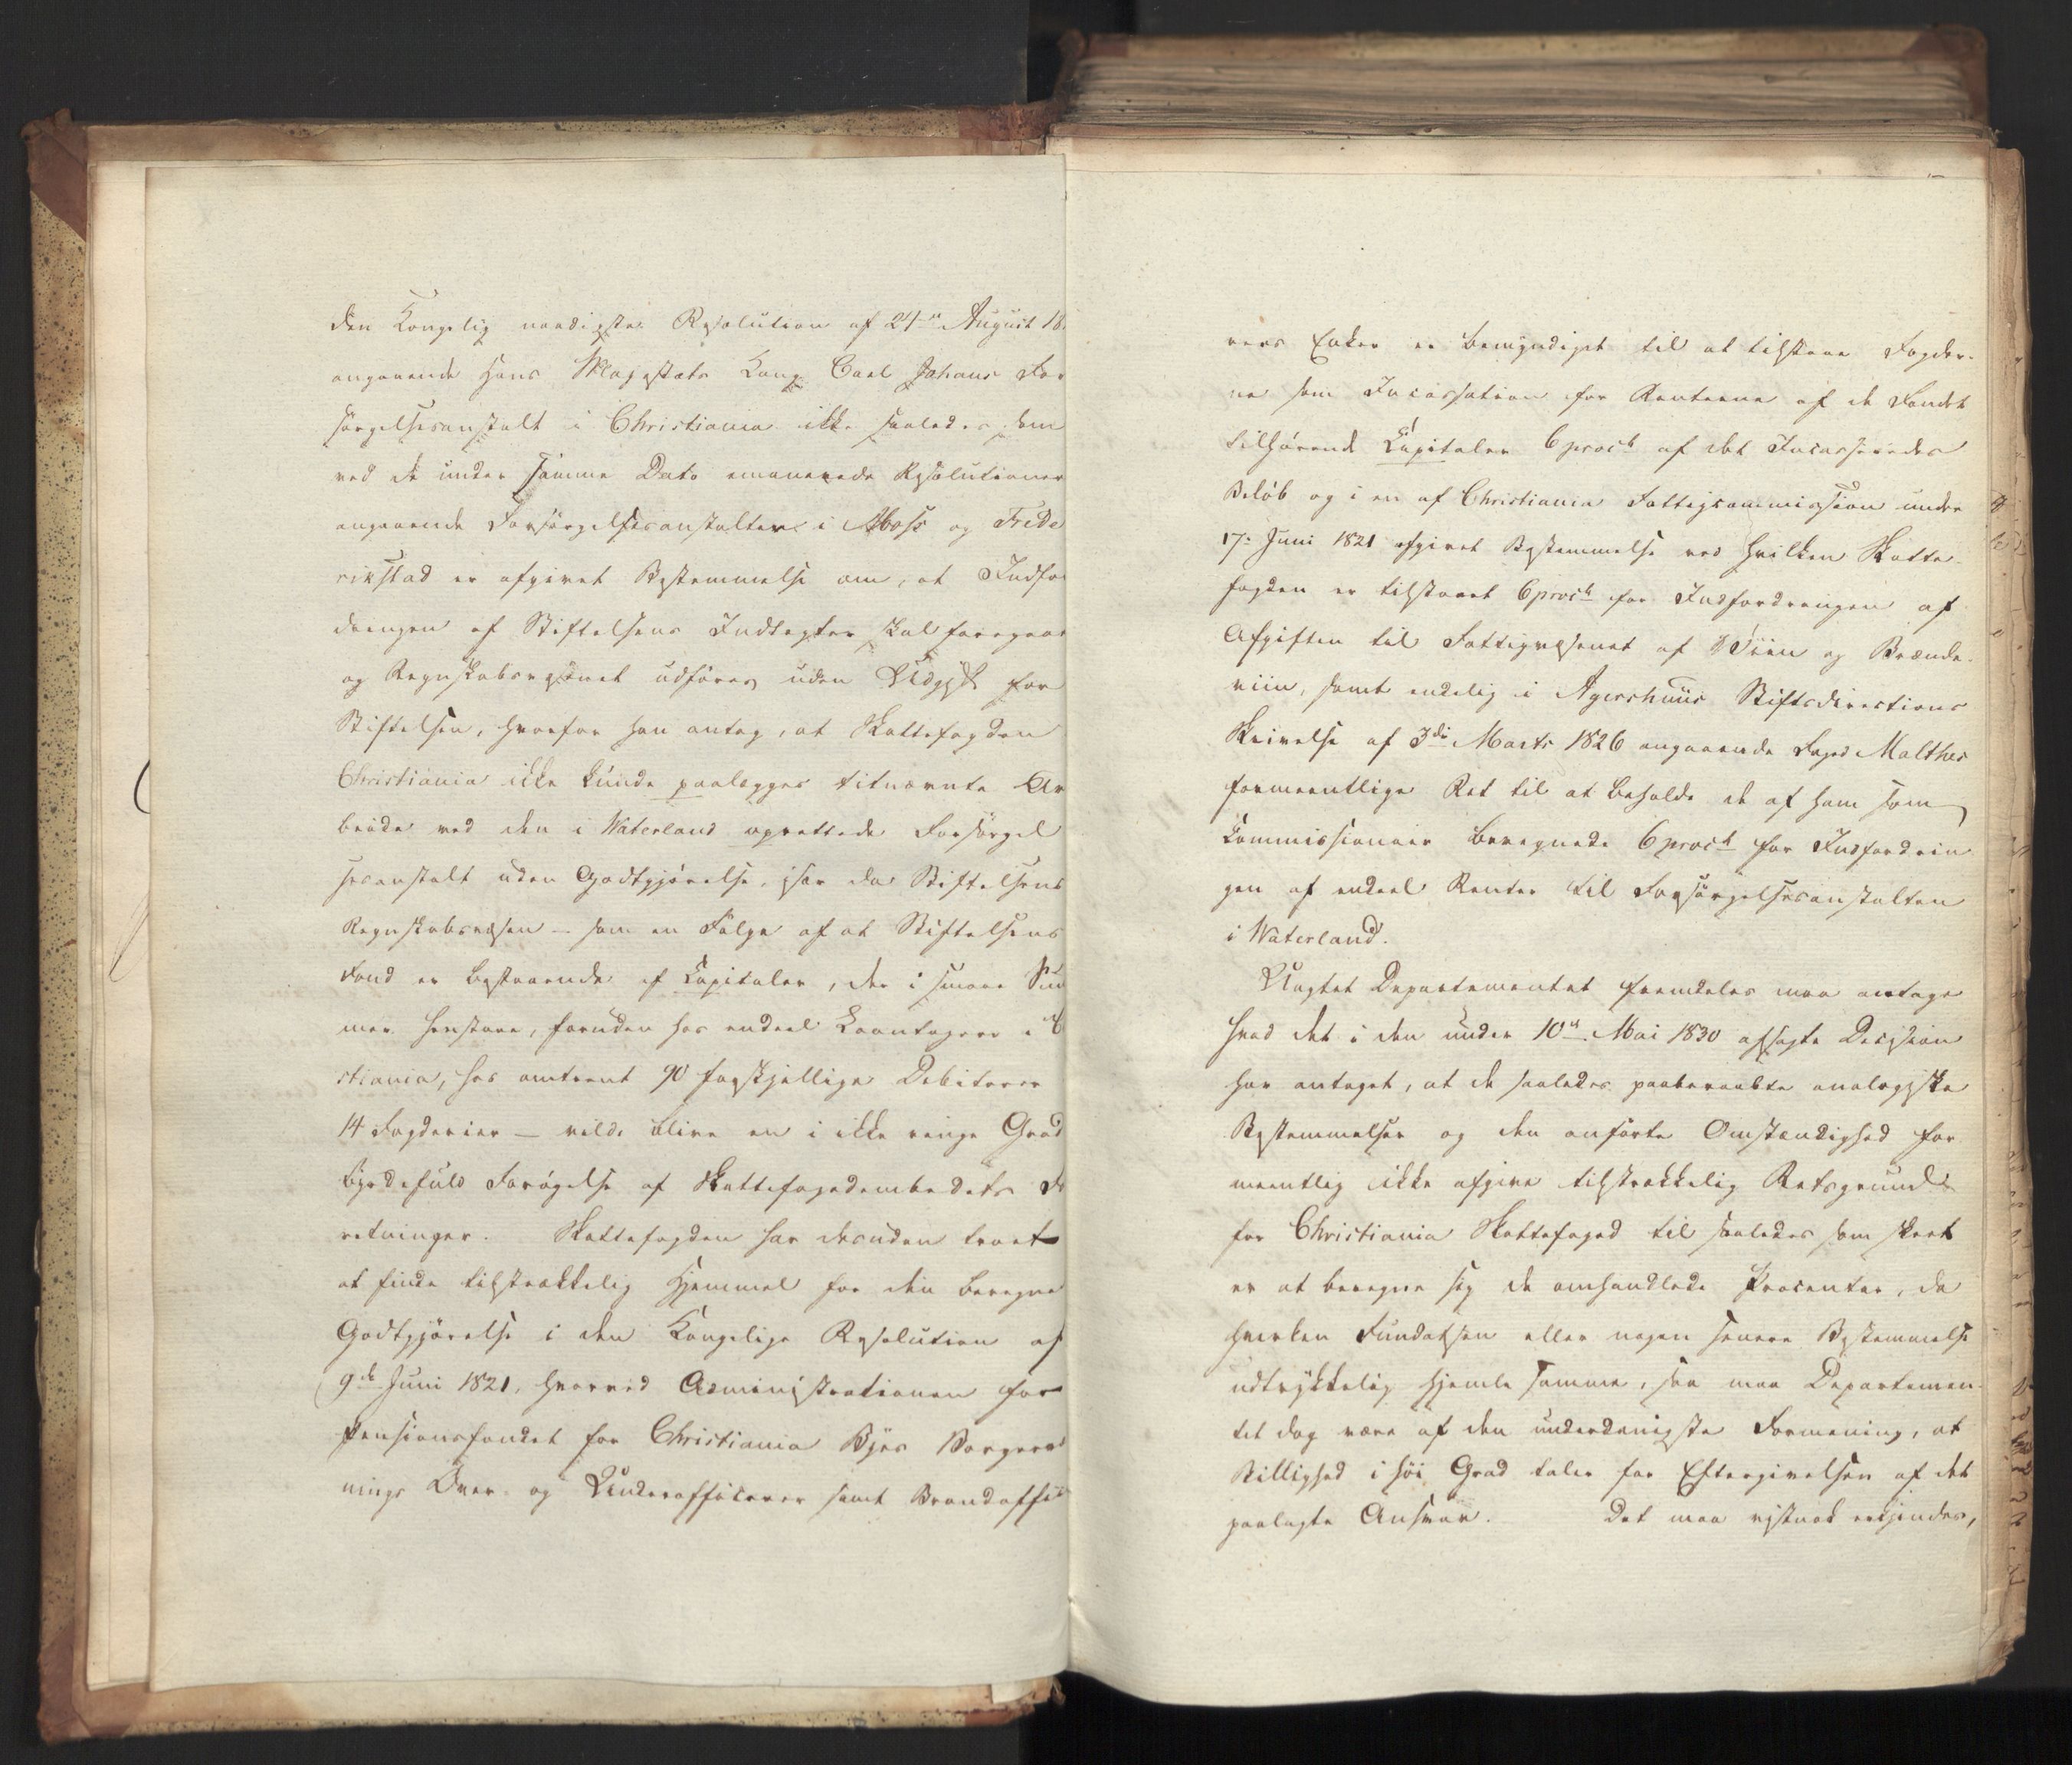 den Kongelig naadigste Resolution af 24de August 18
angaaende Hans Majestæts Kong Carl Johans For
sørgelsesanstalt i Christiania ikke saaledes som
ved de under samme Dato emanerede Resolutioner
angaaende Forsørgelsesanstalter i Moss og Frede
rikstad er afgivet Bestemmelse om, at Indfor
dringen af Stiftelsens Indtægter skal foregaae
og Regnskabsvæsenet udføres uden Udgift for
Stiftelsen, hvorfor han antog, at Skattefogden
Christiania ikke kunde paalægges bitnævnte Ar
beide ved den i Waterland oprettede Forsørgel
sesanstalt uden Godtgjørelse, især da Stiftelsens
Regnskabsvæsen – som en Følge af at Stiftelsens
Fond er bestaaende af Capitaler, der i smaae Sum
mer henstaae, foruden hos endeel Laantagere i C
stiania, hos omtrent 90 forskjellige Debitorer
14 Fogderier – vilde blive en i ikke ringe Grad
byrdefuld Forøgelse af Skattefogedembedets For
retninger. Skattefogden har desuden troet
at finde tilstrækkelig Hjemmel for den beregne
Godtgjørelse i den Kongelige Resolution af
9de Juni 1821, hvorved Administrationen for
Pensionsfondet for Christiania Byes Borgervæb
nings Over og Underofficerer samt Brandoffi
rers Enker er bemyndiget til at tilstaae Fogder-
ne som Incassation for Renterne af de Fondet
tilhørende Capitaler 6 proct af det Incasserede
Beløb og i en af Christiania Fattigcommission under
17de Juni 1821 afgivet Bestemmelse ved hvilken Skatte-
fogden er tilstaaet 6 proct for Indfordringen af
Afgiften til Fattigvæsenet af Viin og Brænde-
viin, samt endelig i Agershuus Stiftsdirections
Skrivelse af 3die Marts 1826 angaaende Foged Malthes
formeentlige Ret til at beholde de af ham som
Commissionair beregnede 6 proct for Indfordrin
gen af endeel Renter til Forsørgelsesanstalten
i Waterland.
Uagtet Departementet fremdeles maa antage
hvad det i den under 10de Mai 1830 afsagte Decision
har antaget, at de saaledes paaberaabte analogiske
Bestemmelser og den anførte Omstændighed for
meentlig ikke afgive tilstrækkelig Retsgrund
for Christiania Skattefoged til saaledes som skeet
er at beregne sig de omhandlede Procenter, da
hverken Fundatsen eller nogen senere Bestemmelse
udtrykkelig hjemle samme, saa maa Departemen-
tet dog være af den underdanigste Formening, at
Billighed i høi Grad taler for Eftergivelsen af det
paalagte Ansvar. Det maa vistnok erkjendes,